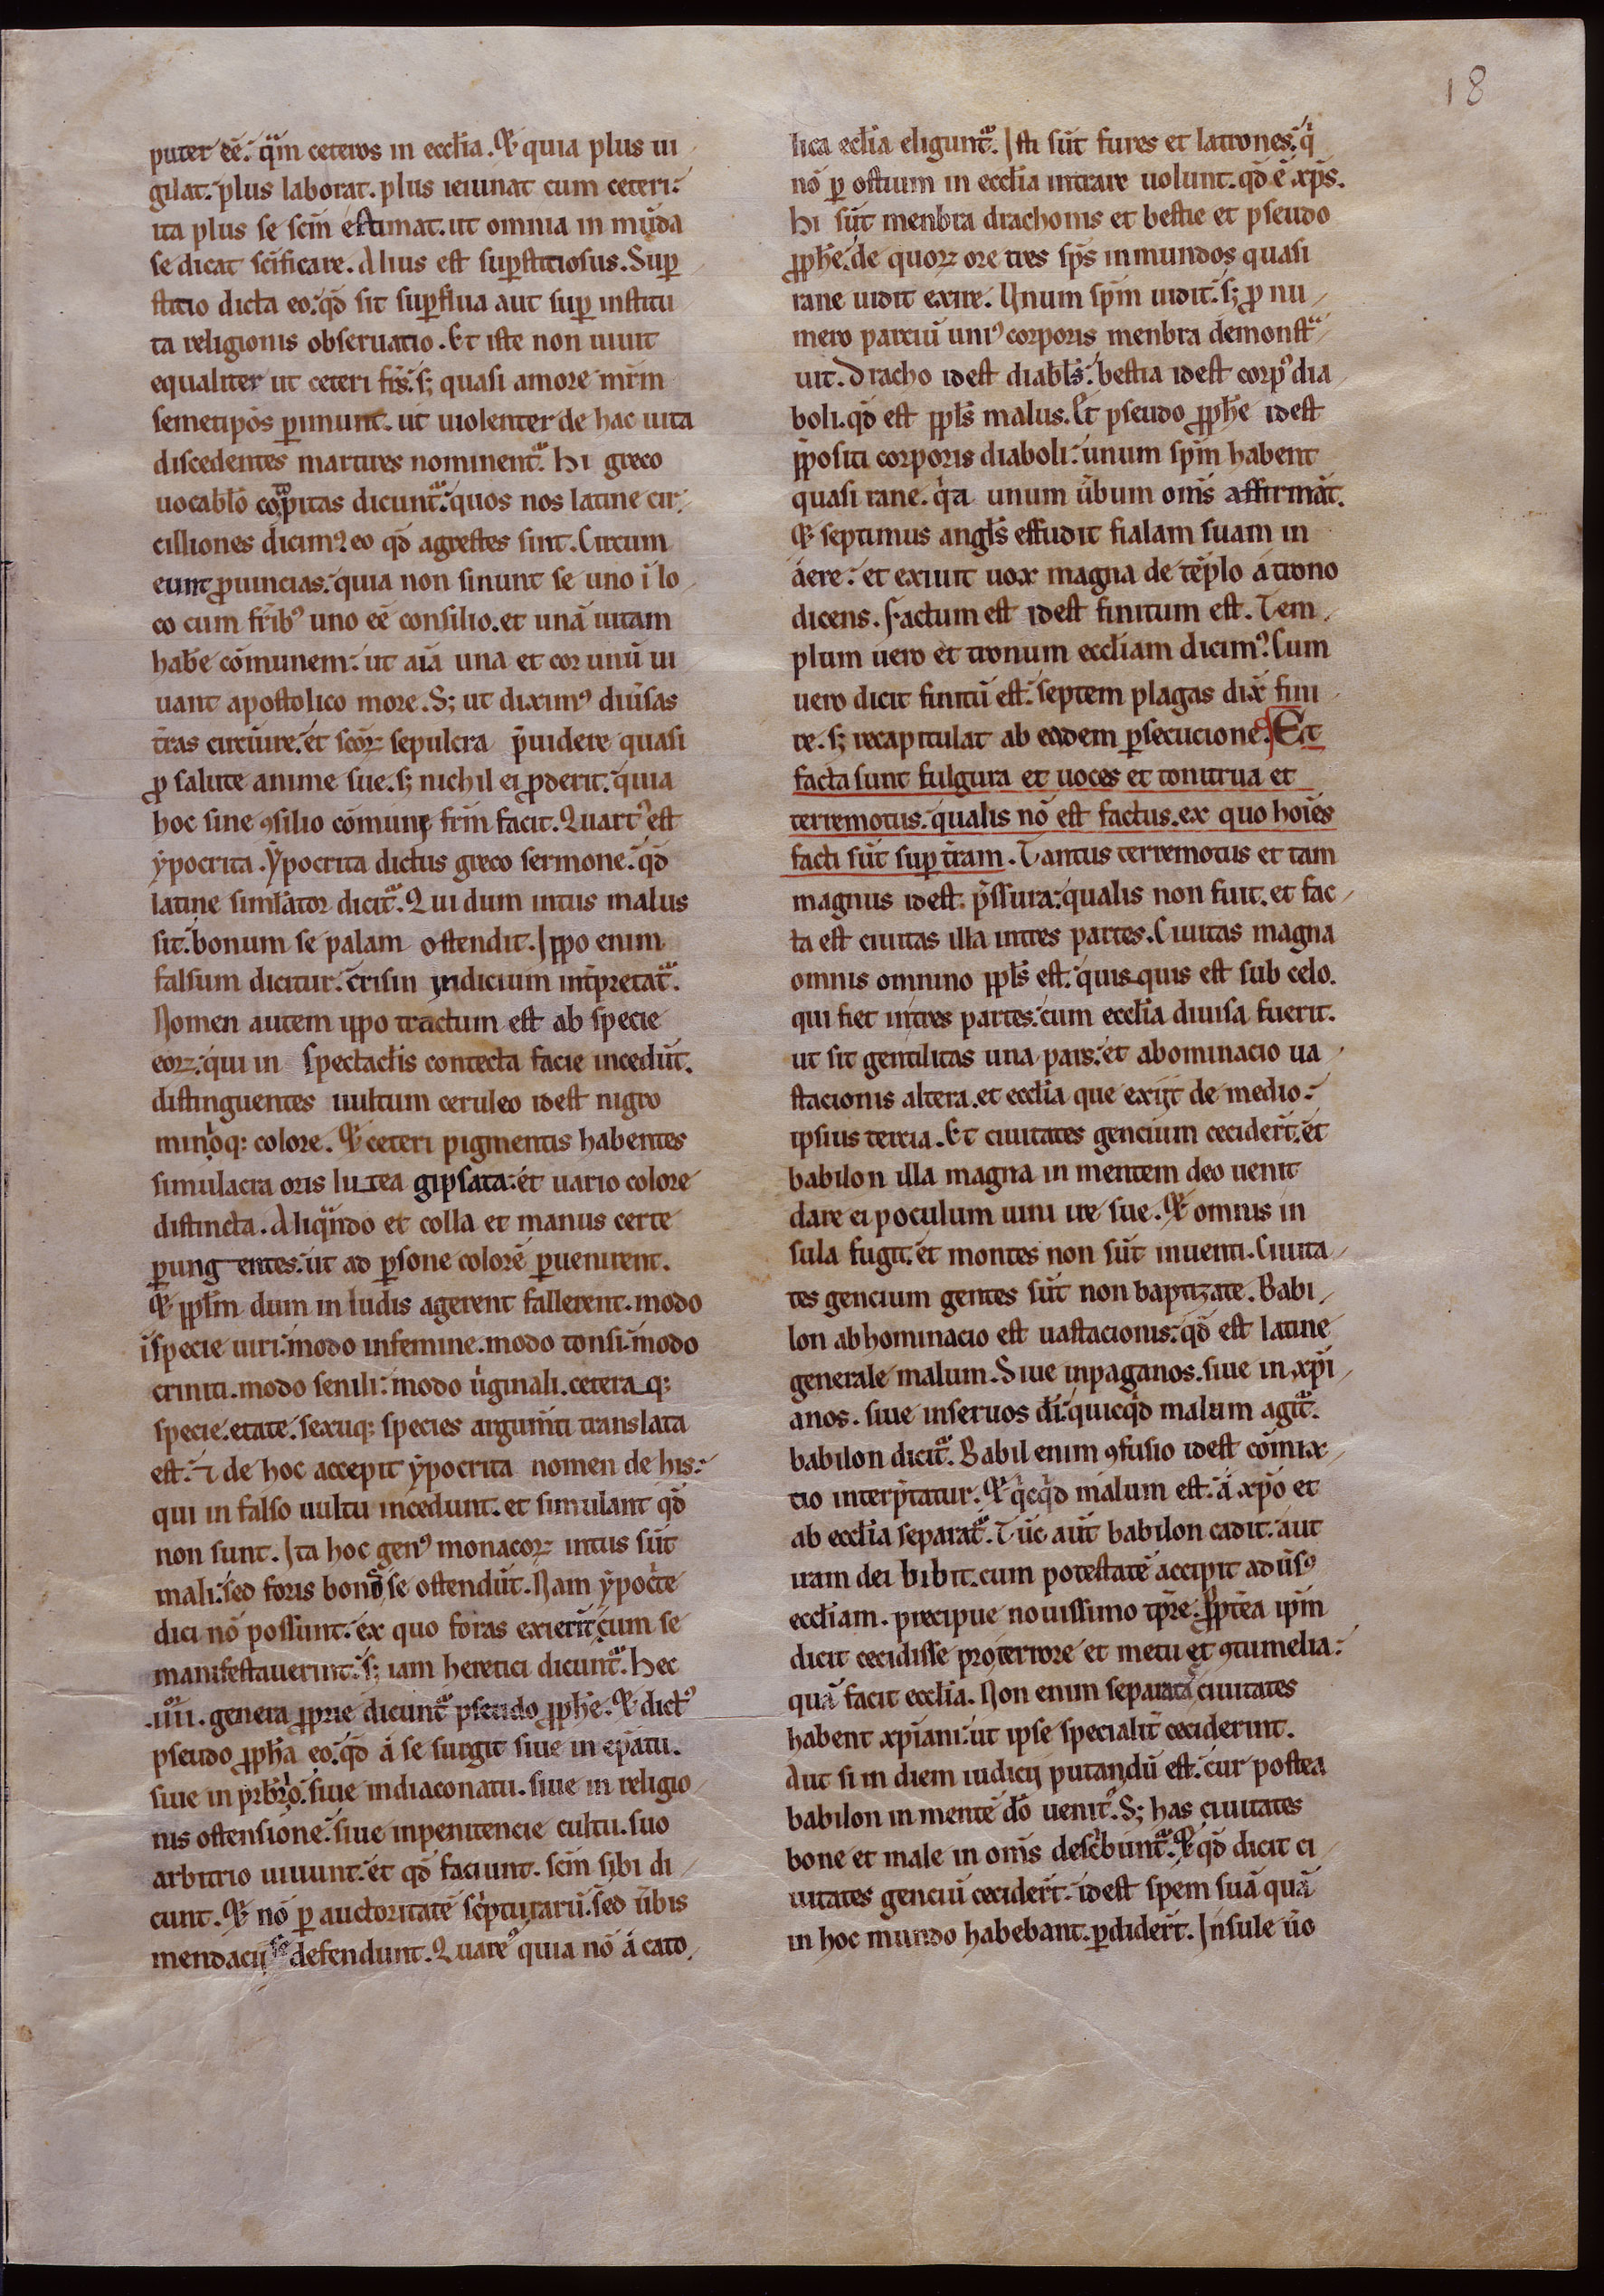 18
putet eē. q̄m ceteros in ecclīa. Et quia plus ui
gilat. plus laborat. plus ieiunat cum ceteri.
ita plus se scīm estimat. ut omnia in mūda
se dicat scīficare. Alius est suꝑstitiosus. Suꝑ
stitio dicta eo. qđ sit suꝑflua aut suꝑ institu
ta religionis obseruatio. Et iste non uiuit
equaliter ut ceteri fr̄s. s; quasi amore mr̄m
semetipōs ꝑimunt. ut uiolenter de hac uita
discedentes martires nominent᷑. Hi greco
uocabl̄o
dicunt᷑. quos nos latine cir
cilliones dicimꝰ eo qđ agrestes sint. Circum
eunt ꝓuincias. quia non sinunt se uno ī lo
co cum fr̄ibꝰ uno eē consilio. et unā uitam
hab̄e cōmunem. ut aīa una et cor unū ui
uant apostolico more. S; ut diximꝰ diūsas
t̄ras circūire. et scōꝝ sepulcra p̄uidere quasi
ꝓ salute anime sue. s; nichil ei ꝓderit. quia
hoc sine ꝯsilio cōmuni fr̄m facit. Quartꝰ est
ẏpocrita. Ẏpocrita dictus greco sermone. qđ
latine siml̄ator dicit᷑. Qui dum intus malus
sit. bonum se palam ostendit. Ippo enim
falsum dicitur. crisin iudicium int̄pretat᷑.
Nomen autem ippo tractum est ab specie
eoꝝ. qui in spectacl̄is contecta facie incedūt.
distinguentes uultum ceruleo idest nigro
minioq: colore. Et ceteri pigmentis habentes
simulacra oris lutea gipsata. et uario colore
distincta. Aliqn̄do et colla et manus certe
ꝑungentes. ut ad ꝑsone colorē ꝑuenirent.
Et ppl̄m dum in ludis agerent fallerent. modo
ī specie uiri. modo in femine. modo tonsi. modo
criniti. modo senili. modo ūginali. cetera q:
specie. etate. sexuq: species argum̄ti translata
est. ⁊ de hoc accepit ẏpocrita nomen de his.
qui in falso uultu incedunt. et simulant qđ
non sunt. Ita hoc genꝰ monacoꝝ intus sūt
mali. sed foris bonos se ostendūt. Nam ẏpoc̄te
dici nō possunt. ex quo foras exierīt. cum se
manifestauerint. s; iam heretici dicunt᷑. Hec
.iiii. genera ꝓprie dicunt᷑ pseudo ꝓph̄e. Et dictꝰ
pseudo ꝓph̄a eo. qđ á se surgit siue in ep̄atu.
siue in pr̄br̄o. siue in diaconatu. siue in religio
nis ostensione. siue in penitencie cultu. suo
arbitrio uiuunt. et qđ faciunt. scīm sibi di
cunt. Et nō ꝑ auctoritatē sc̄pturarū. sed ūbis
mendacii se defendunt. Quare quia nō á cato
lica eclīa eligunt᷑. Isti sūt fures et latrones. q̄
nō ꝑ ostium in ecclīa intrare uolunt. qđ ē xp̄s.
Hi sūt menbra drachonis et bestie et pseudo
ꝓph̄e. de quoꝝ ore tres sp̄s inmundos quasi
rane uidit exire. Unum sp̄m uidit. s; ꝓ nu
mero parciū uniꝰ corporis menbra demonst᷑
uit. Dracho idest diabl̄s. bestia idest corpꝰ dia
boli. qđ est ppl̄s malus. Et pseudo ꝓph̄e idest
p̄positi corporis diaboli. unum sp̄m habent
quasi rane. q̄a unum ūbum om̄s affirmāt.
Et septimus angl̄s effudit fialam suam in
áere. et exiuit uox magna de tēplo á trono
dicens. Factum est idest finitum est. Tem
plum uero et tronum eccl̄iam dicimꝰ. Cum
uero dicit finitū est. septem plagas dix̄ fini
re. s; recapitulat ab eadem ꝑsecucione. Et
facta sunt fulgura et uoces et tonitrua et
terremotus. qualis nō est factus. ex quo hoīes
facti sūt suꝑ t̄ram. Tantus terremotus et tam
magnus idest p̄ssura. qualis non fuit. et fac
ta est ciuitas illa in tres partes. Ciuitas magna
omnis omnino ppl̄s est. quis quis est sub celo.
qui fiet in tres partes. cum ecclīa diuisa fuerit.
ut sit gentilitas una pars. et abominacio ua
stacionis altera. et ecclīa que exijt de medio
ipsius tercia. Et ciuitates gencium ceciderт̄. et
babilon illa magna in mentem deo uenit
dare ei poculum uini ire sue. Et omnis in
sula fugit. et montes non sūt inuenti. Ciuita
tes gencium gentes sūt non baptizate. Babi
lon abhominacio est uastacionis. qđ est latine
generale malum. Siue in paganos. siue in xp̄i
anos. siue in seruos dī. quicqđ malum agit᷑.
babilon dicit᷑. Babil enim ꝯfusio idest cōmix
tio interp̄tatur. Et q̄cqđ malum est. á xp̄o et
ab ecclīa separat᷑. Tūc aūt babilon cadit. aut
iram dei bibit. cum potestatē accipit adūsꝰ
eccl̄iam. precipue nouissimo tp̄re. ꝓpt̄ea ip̄m
dicit cecidisse pro terrore et metu et ꝯtumelia.
quā facit ecclīa. Non enim separatā ciuitates
habent xp̄iani. ut ipse specialit̄ ceciderint.
Aut si in diem iudicij putandū est. cur postea
babilon in mentē dō uenit. S; has ciuitates
bone et male in om̄s desc̄bunt᷑. Et qđ dicit ci
uitates genciū ceciderт̄. idest spem suā quā
in hoc mundo habebant. ꝑdidert̄. Insule ūo